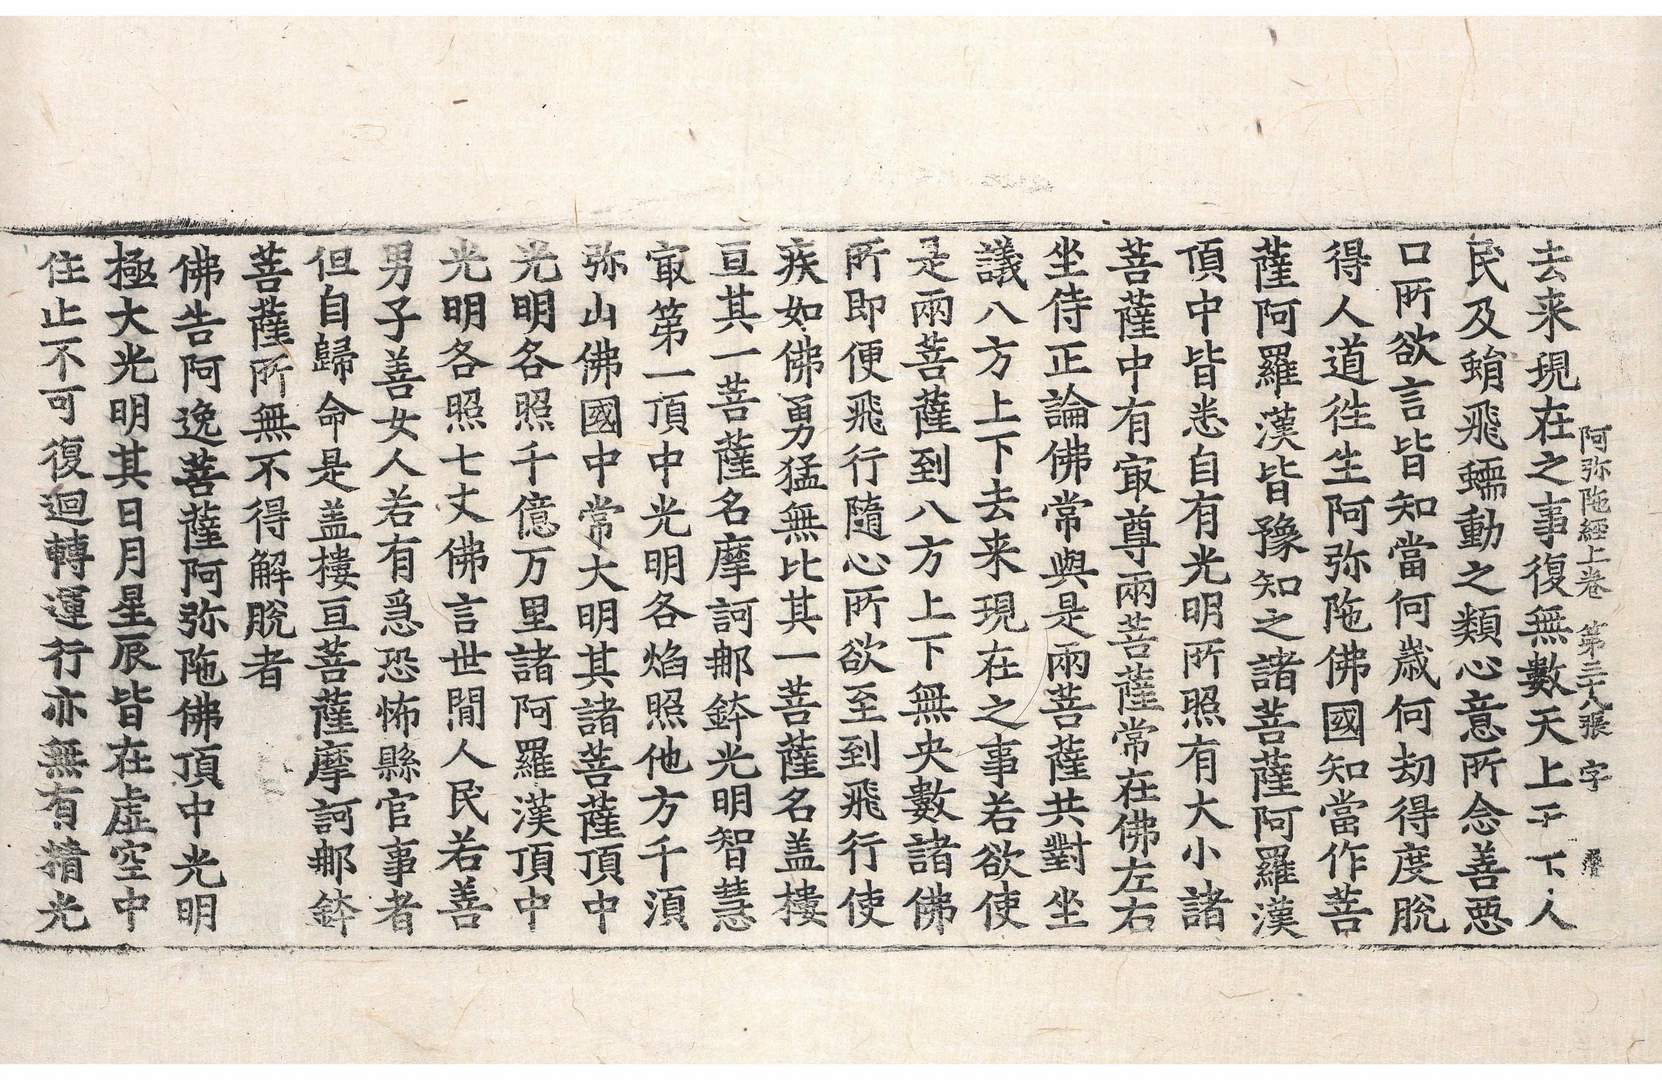 阿弥陁經上卷 第二十八張 字
去来現在之事復無數天上天下人
民及蜎飛蠕動之類心意所念善惡
口所欲言皆知當何歲何劫得度脫
得人道徃生阿弥陁佛國知當作菩
薩阿羅漢皆豫知之諸菩薩阿羅漢
頂中皆悉自有光明所照有大小諸
菩薩中有㝡尊兩菩薩常在佛左右
坐侍正論佛常與是兩菩薩共對坐
議八方上下去来現在之事若欲使
是兩菩薩到八方上下無央數諸佛
所即便飛行隨心所欲至到飛行使
疾如佛勇猛無比其一菩薩名盖樓
亘其一菩薩名摩訶那鉢光明智慧
㝡第一頂中光明各焰照他方千湏
弥山佛國中常大明其諸菩薩頂中
光明各照千億万里諸阿羅漢頂中
光明各照七丈佛言世閒人民若善
男子善女人若有急恐怖縣官事者
但自歸命是盖樓亘菩薩摩訶那鉢
菩薩所無不得解脫者
佛告阿逸菩薩阿弥陁佛頂中光明
極大光明其日月星辰皆在虛空中
住止不可復迴轉運行亦無有精光